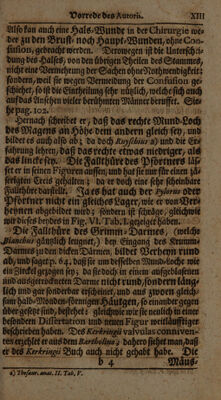 Vorrede des Autoris. XIII
Also kan auch eine Hals-Wunde in der Chirurgie we
der zu den Brust- noch Haupt-Wunden, ohne Con-
fusion, gebracht werden. Derowegen ist die Unterschei-
dung des Halses, von den übrigen Theilen des Stammes,
nicht eine Vermehrung der Sachen ohne Nothwendigkeit:
sondern, weil sie wegen Vermeidung der Confusion ge-
schiehet, so ist die Eintheilung sehr nützlich, welche sich auch
auf das Ansehen vieler berühmten Männer beruffet. Sie-
he pag. 102.
Hernach schreibet er, daß das rechte Mund-Loch
des Magens an Höhe dem andern gleich sey, und
bildet es auch also ab; da doch Ruyschius a) und die Er-
fahrung lehren, daß das rechte etwas niedriger, als
das lincke sey. Die Fallthüre des Pförtners läs-
set er in seinen Figuren aussen, und hat sie nur für einen zä-
serigten Creis gehalten; da doch eine sehr scheinbare
Fallthüre daselbst. Fers hat auch der Pylorus oder
Pförtner nicht ein gleiches Lager, wie er von Ver-
heyen abgebildet wird; sondern ist schräge, gleichwie
wir dieses beydes in Fig. VI. Tab. I. gezeiget haben.
Die Fallthüre des Grimm-Darmes, (welche
Bianchus gäntzlich leugnet,) bey Eingang des Krumm-
Darmes zu denen dicken Därmen, bildet Verheyen rund
ab, und saget p. 64, daß sie um desselben Mund-Loch
ein Zirckel gezogen sey; da sie doch in einem aufgeblasenen
und ausgetrockneten Darme nicht rund, sondern läng-
lich und gar sonderbar erscheinet, und aus zweyen gleich-
sam halb-Monden-förmigen Häutgen, so einander gegen
über gesetzt sind, bestehet; gleichwie wir sie neulich in einer
besondern Dissertation und neuen Figur weitläufftiger
beschrieben haben. Des Kerckringii valvulas conniven-
ten erzehlet er aus dem Bartholino; dahero siehet man, daß
er des Kerckringii Buch auch nicht gehabt habe. Die
b 4 Mäus-
a) Thesaur. anat. II. Tab. V.